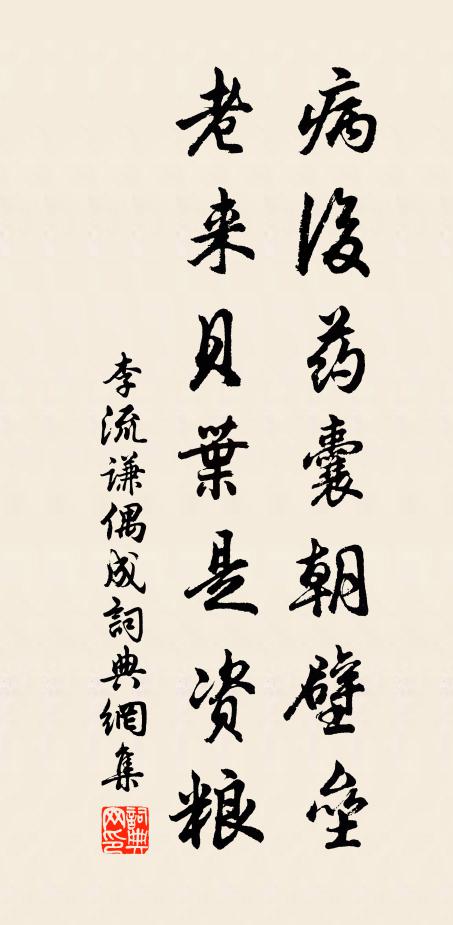 病後药囊朝壁垒
老来貝葉是资粮
李流谦偶成詞典網集
詞典
网印